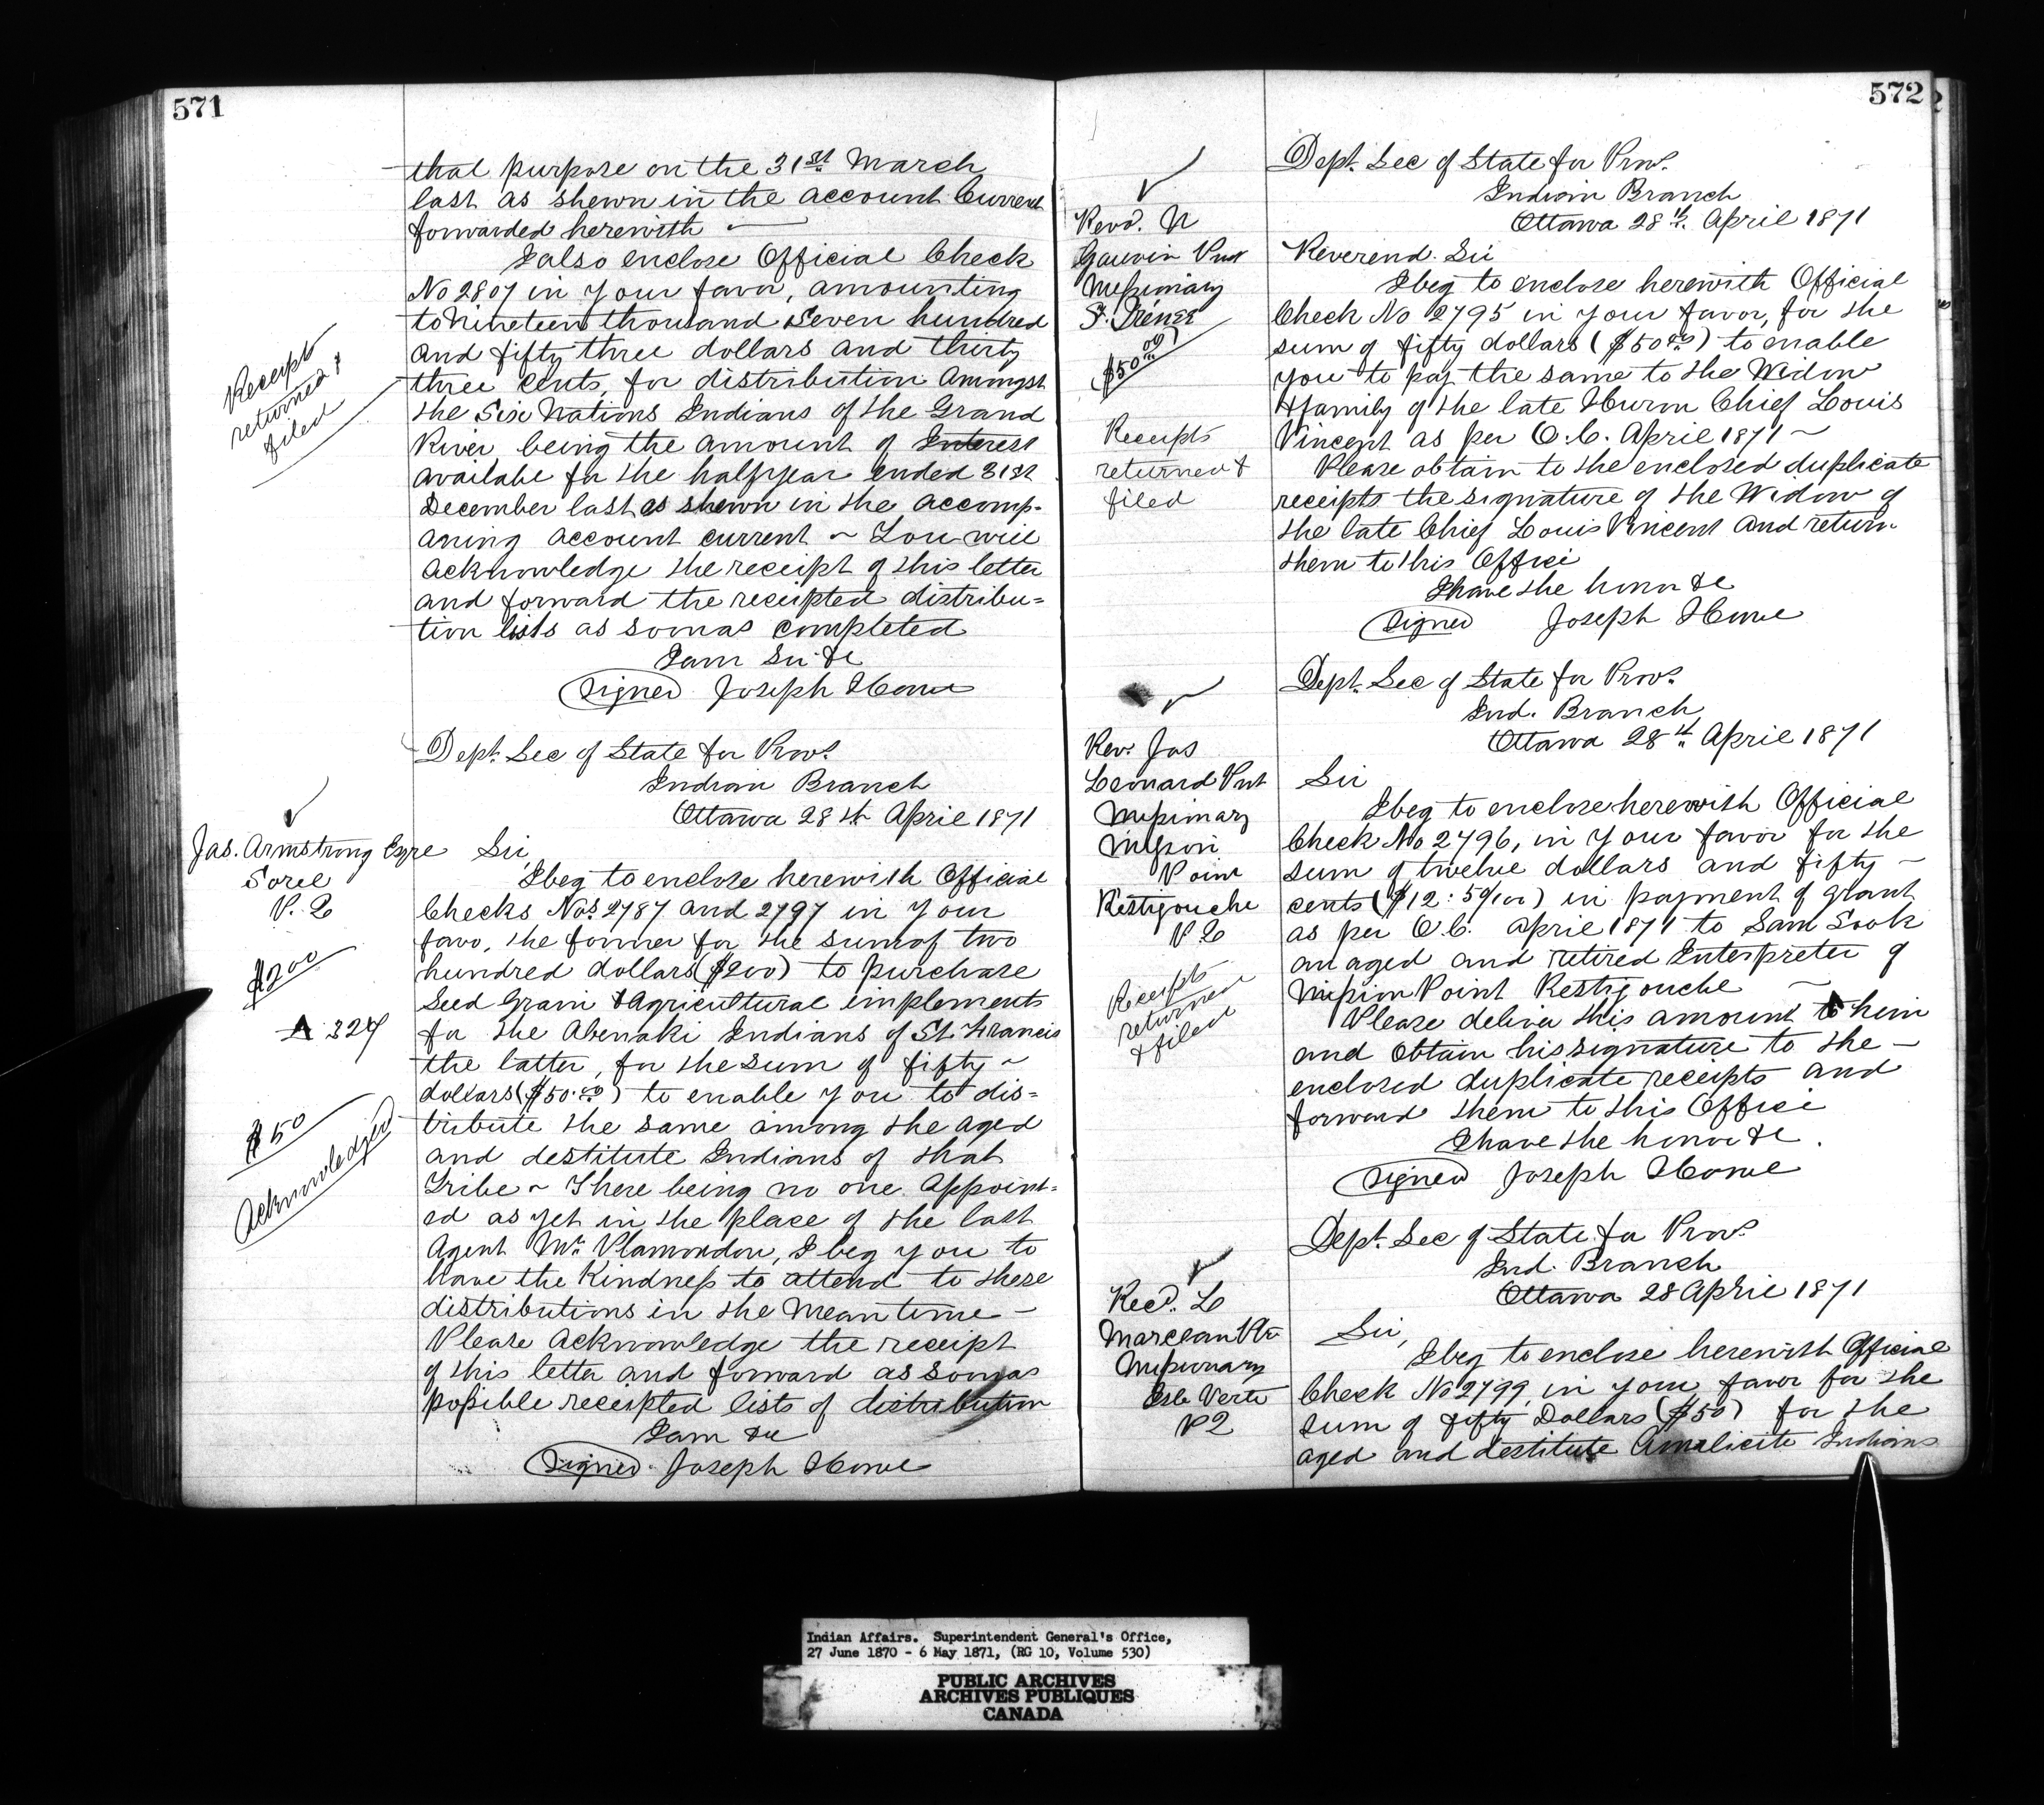 571
that purpose on the 31st March
last as shewn in the account Current
forwarded herewith
I also enclose Official Check
No 2807 in your favor, amounting
to nineteen thousand seven hundred
and fifty three dollars and thirty
three cents, for distribution amongst
the Six Nations Indians of the Grand
River being the amount of Interest
availabe for the halfyear ended 31st
December last as shewn in the accomp-
aning account current ~ You will
acknowledge the receipt of this letter
and forward the receipted distribu=
tion lists as soon as completed
I am Sir &c
Signed Joseph Howe
Receipts
returned &
filed
Dept. Sec of State for Provs.
Indian Branch
Ottawa 28th April 1871
Jas. Armstrong Esqre
Sorel
P. Q
$200
A 324
$50
Acknowledged
Sir,
I beg to enclose herewith Official
Checks Nos 2787 and 2797 in your
favo, the former for the sum of two
hundred dollars ($200) to purchase
Seed Grain & Agricultural implements
for the Abenaki Indians of St. Francis
the latter, for the sum of fifty ~
dollars ($50.00) to enable you to dis=
tribute the same among the aged
and destitute Indians of that
Tribe ~ There being no one appoint=
ed as yet in the place of the last
Agent Mr. Plamondon, I beg you to
have the Kindness to attend to these
distributions in the Mean time ~
Please acknowledge the receipt
of this letter and forward as soon as
possible receipted lists of distribution
I am &c
Signed Joseph Howe
572
Dept. Sec of State for Provs.
Indian Branch
Ottawa 28th April 1871
Revd. N
Gauvin
Missionary
$50.00
Receipts
returned &
filed
Reverend Sir
I beg to enclose herewith Official
Check No 2795 in your favor, for the
sum of fifty dollars ($50.00) to enable
you to pay the same to the Widow
& family of the late Huron Chief Louis
Vincent as per O.C. April 1871 ~
Please obtain to the enclosed duplicate
receipts the signature of the Widow of
the late Chief Louis Vincent and return
them to this Office
I have the honor &c
Signed Joseph Howe
Dept. Sec of State for Provs.
Ind. Branch
Ottawa 28th April 1871
Rev. Jas
Leonard
Missionary
Mission
Point
Restigouche
P. Q
Receipts
returned
& filed
Sir
I beg to enclose herewith Official
Check No 2796, in your favor for the
sum of twelve dollars and fifty ~
cents ($12:50/100) in payment of grant
as per O.C. April 1871 to Sam Sook
an aged and retired Interpreter of
Mission Point Restigouche ~
Please deliver this amount to him
and obtain his signature to the ~
enclosed duplicate receipts and
forward them to this Office
I have the honor &c.
Signed Joseph Howe
Dept. Sec of State for Provs
Ind. Branch
Ottawa 28 April 1871
Revd. L
Marceau Ptr
Missionary
Isle Verte
P Q
Sir,
I beg to enclose herewith Official
Check No 2799 in your favor for the
sum of fifty Dollars ($50) for the
aged and destitute Amalicite Indians
Indian Affairs. Superintendent General's Office,
27 June 1870 - 6 May 1871, (RG 10, Volume 530)
PUBLIC ARCHIVES
ARCHIVES PUBLIQUES
CANADA